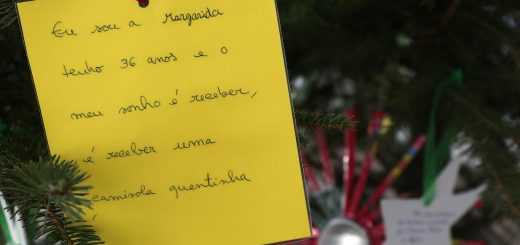 Eu sou a Margarida
tenho 36 anos e o
meu sonho é receber,
é receber uma
camisola quentinha